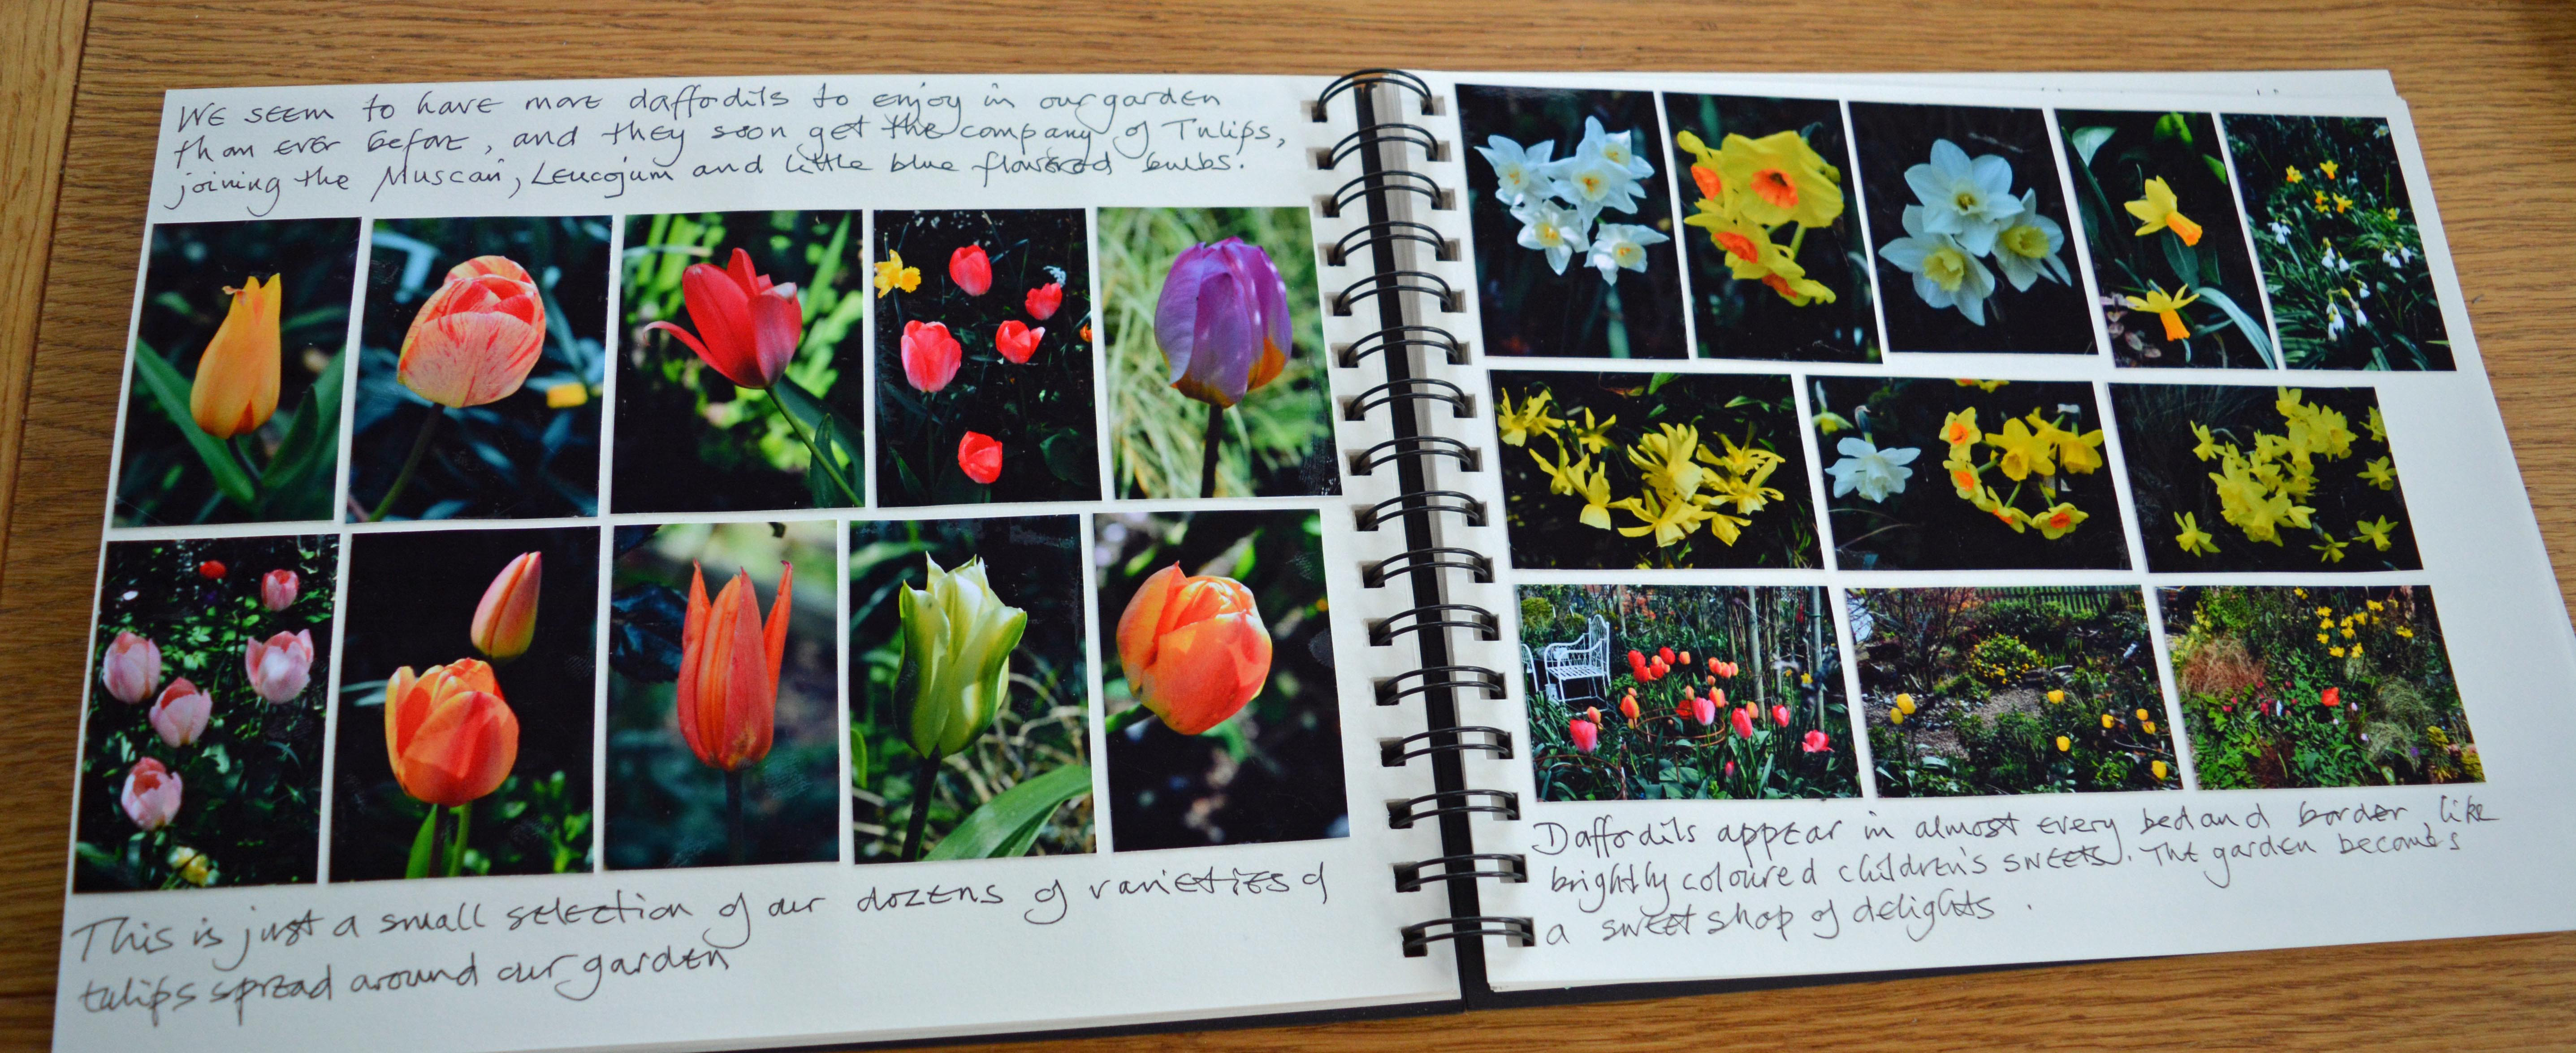 We seem to have more daffodils to enjoy in our garden
than ever before, and they soon get the company of Tulips,
joining the Muscari, Leucojum and little blue flowered bulbs.
This is just a small selection of our dozens of varieties of
tulips spread around our garden
Daffodils appear in almost every bed and border, like
brightly coloured children's sweets. The garden becomes
a sweet shop of delights.